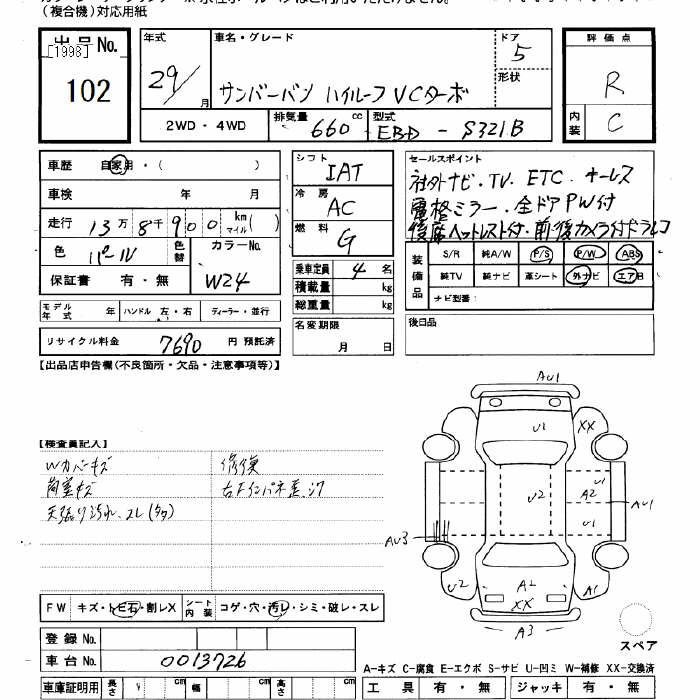 (複合機)対応用紙
出品No.
[1998]
102
年式
29/
月
車名・グレード
サンバーバン ハイルーフ VCターボ
ドア
5
形状
評価点
R
内装
C
2WD・4WD
排気量
660
cc
型式
EBD - S321B
車歴
自家用・( )
車検 年 月
走行
13万8千900
km(マイル)
色
パール
色替
カラーNo.
W24
保証書 有・無
シフト
IAT
冷房
AC
燃料
G
乗車定員 4 名
積載量 kg
総重量 kg
セールスポイント
社外ナビ・TV. ETC キーレス
電格ミラー・全ドアPW付
後席ヘッドレスト付・前後カメラ付ドラレコ
装備品
S/R 純A/W P/S P/W ABS
純TV 純ナビ 革シート 外ナビ エアB
ナビ型番:
モデル年式 年
ハンドル 左・右
ディーラー・並行
リサイクル料金 7690 円 預託済
名変期限
月 日
後日品
【出品店申告欄(不良箇所・欠品・注意事項等)】
【検査員記入】
Wカバーキズ
荷室キズ
天張り汚れ、スレ(多)
修復
AU1
U1
XX
U2
U1
A2
U1
AU1
AU3
U2
A2
XX
A1
A3
スペア
FW キズ・トビ石・割レX
シート内装 コゲ・穴・汚レ・シミ・破レ・スレ
登録No.
車台No. 0013726
車庫証明用 長さ cm 幅 cm 高さ cm
A-キズ C-腐食 E-エクボ S-サビ U-凹ミ W-補修 XX-交換済
工具 有・無 ジャッキ 有・無